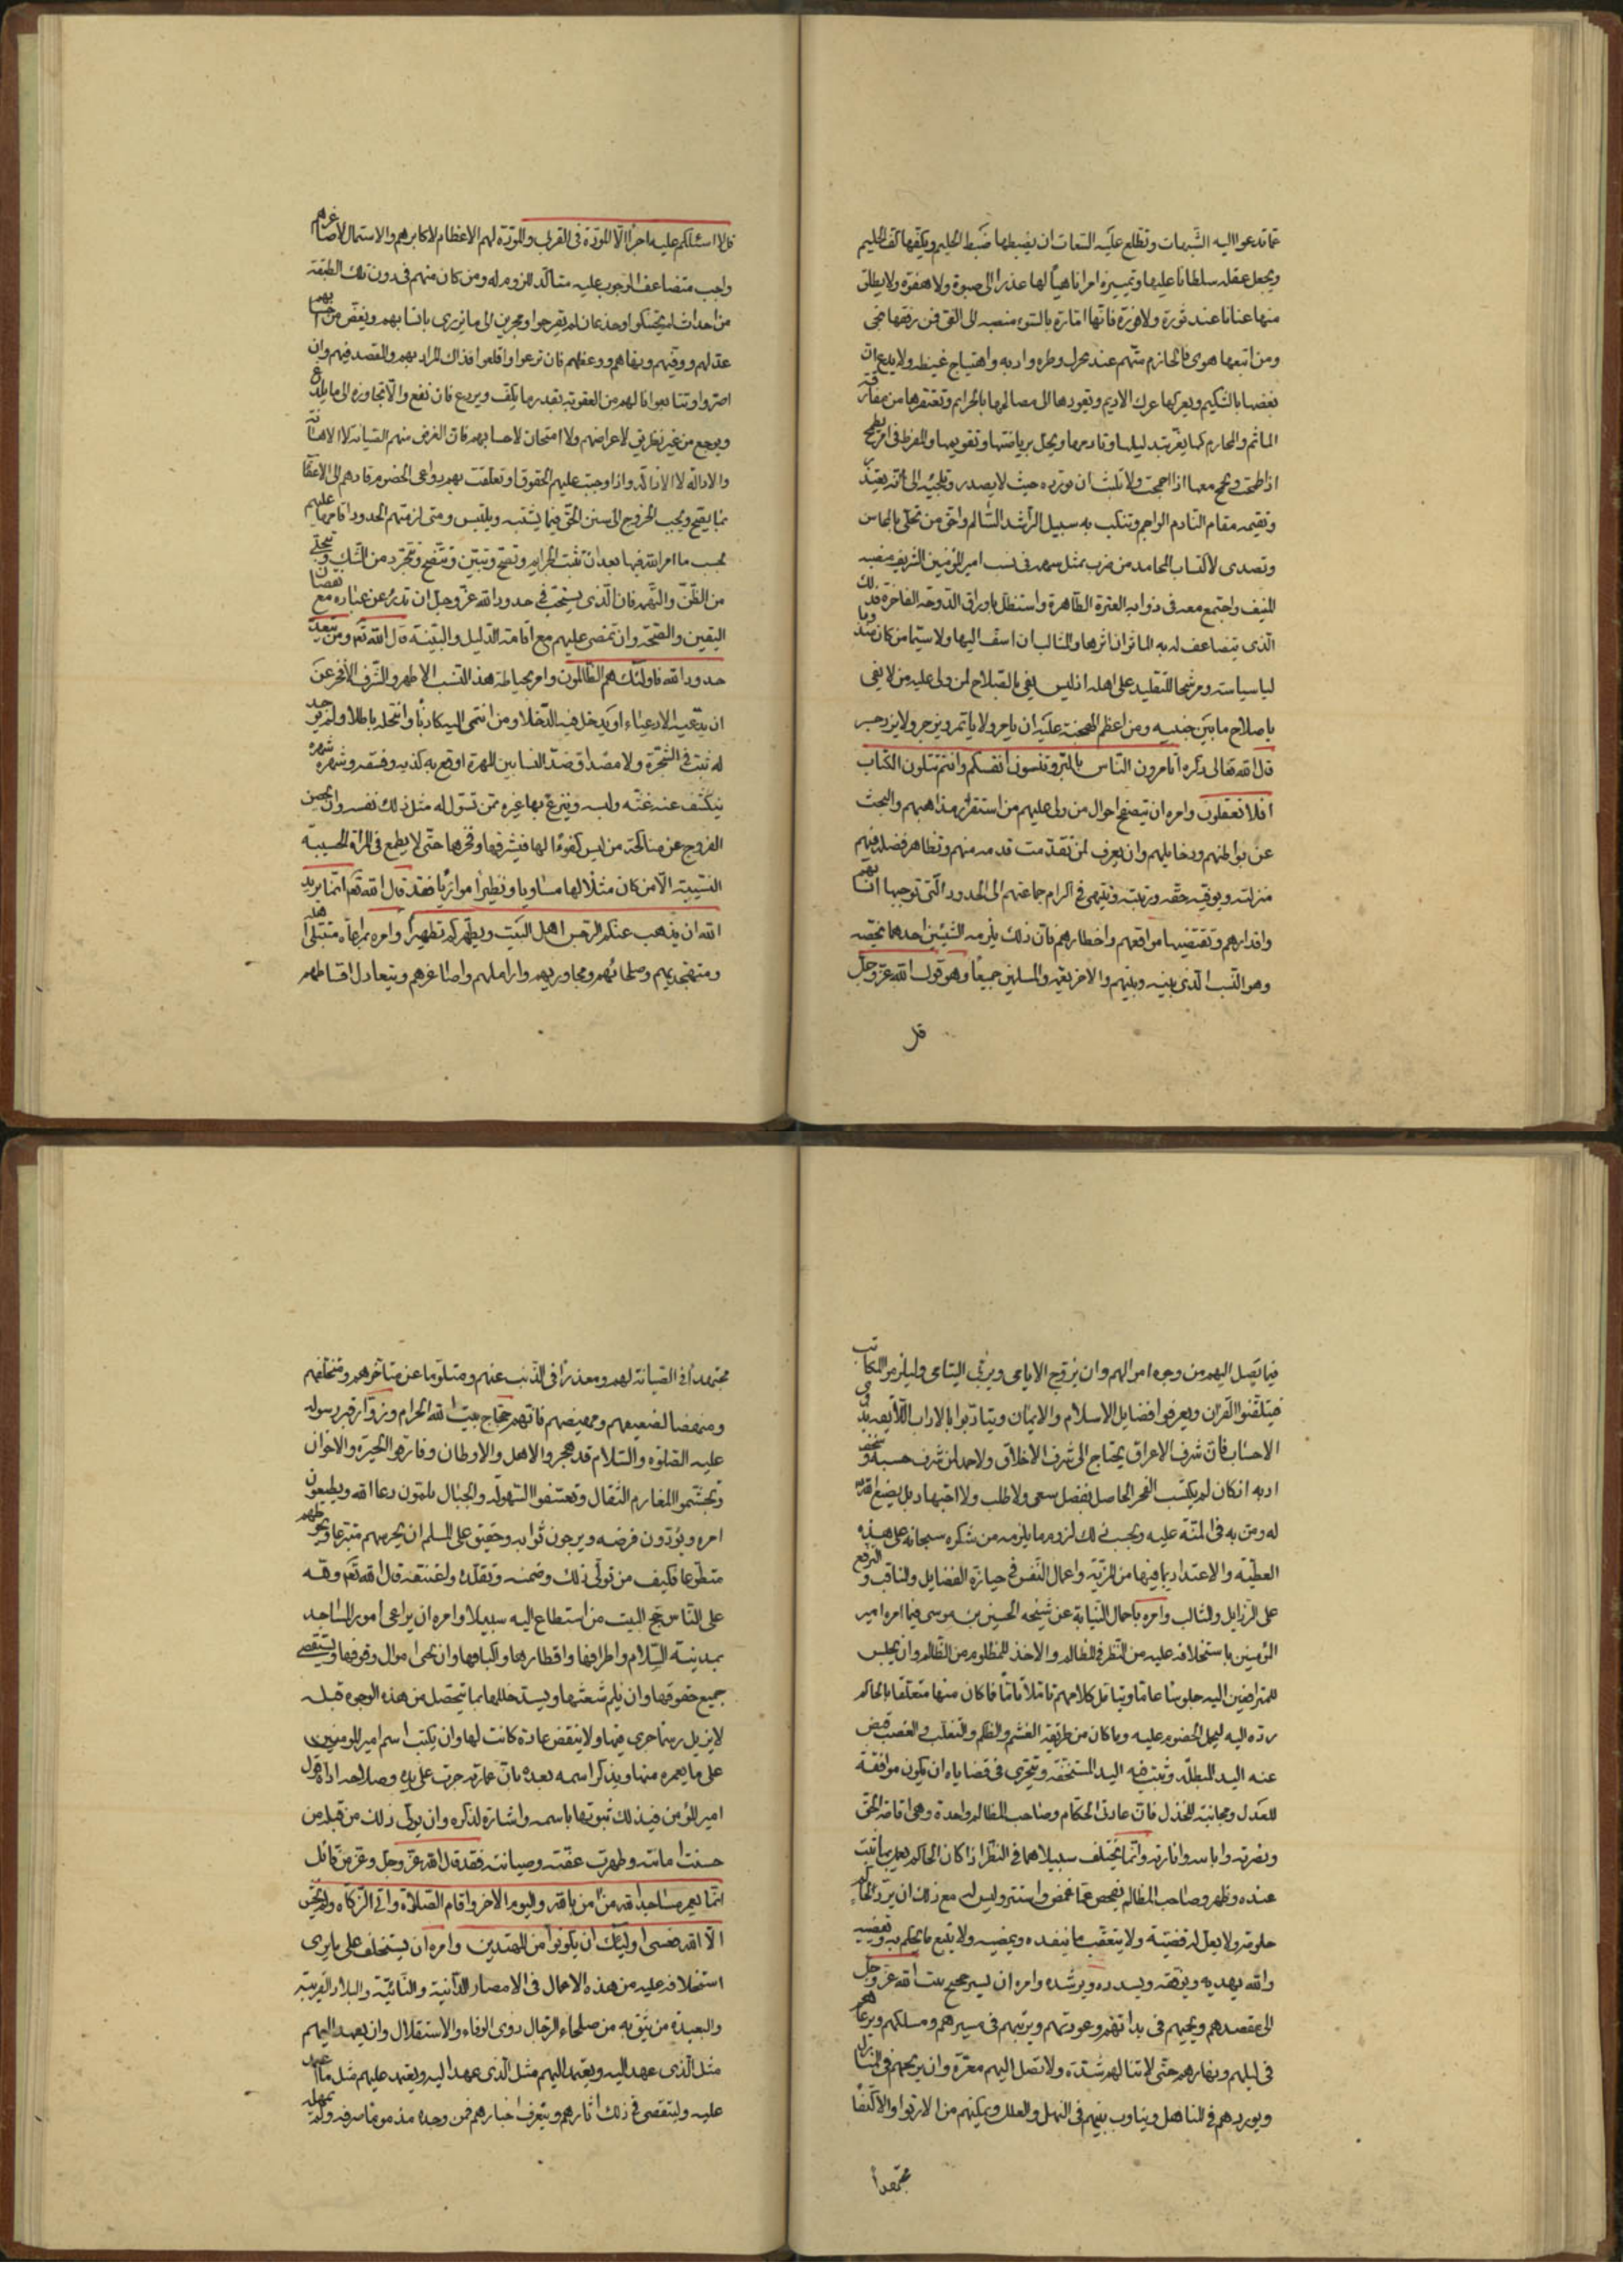 عما تدعوا اليه الشبهات وتطلع عليه التبعات ان يضبطها ضبط الحليم ويكفها كف الحكيم
ويجعل عقله سلطانا عليها وتمييزه امرا ناهيا لها عذرا الى صبوة ولا هفوة ولا يطلق
منها عنانا عند ثورة ولا فورة فانها امارة بالسوء منصبة الى الغي فمن رفضها نجى
ومن اتبعها هوى فالحازم متهم عند تحرك وطره واربه واهتياج غيظه ولا يدع ان
يغضها بالشكيم ويعركها عرك الاديم ويقودها الى مصالحها بالخزايم ويعتقلها من مقارفة
المآثم والمحارم كيما يعز بتذليلها وتاديبها ويجل برياضتها وتقويمها والمفرط في امره تطمح
اذا طمحت ويجمح معها اذا جمحت ولا تلبث ان تورده حيث لا يصدر وتلجئه الى ان يعتذر
وتقيمه مقام النادم الواجم وتتنكب به سبيل الراشد السالم واحق من تحلى بالمحاسن
وتصدى لاكتساب المحامد من ضرب بمثل سهمه في نسب امير المؤمنين الشريف ومنصبه
المنيف واجتمع معه في ذوابة العترة الطاهرة واستظل باوراق الدوحة الفاخرة فذلك
الذي يتضاعف له به المآثر ان اثرها والمثالب ان اسف اليها ولا سيما من كان مندوبا
لسياسته ومرشحا للتقليد على اهله اذ ليس يفي بالصلاح لمن ولي عليه من لا يفي
باصلاح ما بين جنبيه ومن اعظم الهجنة عليه ان يامر ولا ياتمر ويزجر ولا يزدجر
قال الله تعالى ذكره اتامرون الناس بالبر وتنسون انفسكم وانتم تتلون الكتاب
افلا تعقلون وامره ان يتصفح احوال من ولي عليهم من استقراء مذاهبهم والبحث
عن بواطنهم ودخايلهم وان يعرف لمن تقدمت قدمه منهم وتظاهر فضله فيهم
منزلته ويوفيه حقه ورتبته وينتهي في اكرام جماعتهم الى الحدود التي توجبها انسابهم
واقدارهم وتقتضيها مواقعهم واخطارهم فان ذلك يلزمه لشيئين احدهما يخصه
وهو النسب الذي بينه وبينهم والاخر يعمه والمسلمين جميعا وهو قول الله عز وجل
قل
قل لا اسئلكم عليه اجرا الا المودة في القربى والمودة لهم الاعظام لاكابرهم والاستمال لاصاغرهم
واجب متضاعف الوجوب عليه متاكد اللزوم له ومن كان منهم في دون تلك الطبقة
من احداث لم يحتنكوا وجذعان لم يقرحوا ومجرين الى ما يزري بانسابهم ويغض من احسابهم
عذلهم ونبههم ونهاهم ووعظهم فان نزعوا واقلعوا فذاك المراد بهم والقصد فيهم وان
اصروا وتتابعوا انالهم من العقوبة بقدر ما يكف ويردع فان نفع والا تجاوزه الى ما يلذع
ويوجع من غير تطرق لاعراضهم ولا امتهان لاحسابهم فان الغرض منهم الصيانة لا الاهانة
والادالة لا الاذالة واذا وجبت عليهم الحقوق او تعلقت بهم دواعي الخصوم قادهم الى الاعفاء
بما يصح ويجب الخروج الى سنن الحق فيما يشتبه ويلتبس ومتى لزمتهم الحدود اقامها عليهم
بحسب ما امر الله فيها بعد ان تثبت الجرايم وتصح وتبين وتتضح وتتجرد من الشك وتتجلى
من الظن والتهمة فان الذي يستحب في حدود الله عز وجل ان تدرء عن عباده مع نقصان
اليقين والصحة وان تمضى عليهم مع اقامة الدليل والبينة قال الله تع ومن يتعد
حدود الله فاولئك هم الظالمون وامره بحياطة هذا النسب الاطهر والشرف الافخر عن
ان يدعيه الادعياء او يدخل فيه الدخلاء ومن انتمى اليه كاذبا وانتحله باطلا ولم يوجد
له بيت في الشجرة ولا مصداق عند النسابين المهرة اوقع به كذبه وفسقه وشهره شهرة
ينكشف عنه غشه ولبسه وينزع بها غيره ممن تسول له مثل ذلك نفسه وان يحصن
الفروج عن مناكحة من ليس كفوءا لها في شرفها وفخرها حتى لا يطمع في المراة الحسيبة
النسيبة الا من كان مثلا لها مساويا ونظيرا موازيا فقد قال الله تع انما يريد
الله ان يذهب عنكم الرجس اهل البيت ويطهركم تطهيرا وامره بمراعاة متبتلي اهله
ومتهجديهم وصلحائهم ومجاوريهم واراملهم واصاغرهم ويتعادل اقساطهم
فيما يصل اليهم من وجوه اموالهم وان يزوج الايامى ويربي اليتامى وليلزموا المكاتب
فيتلقنوا القران ويعرفوا فضايل الاسلام والايمان ويتادبوا بالاداب اللايقة بذوي
الاحساب فان شرف الاعراق يحتاج الى شرف الاخلاق ولا حمد لمن شرف حسبه وسخف
ادبه اذ كان لم يكتسب الفخر الحاصل بفضل سعي ولا طلب ولا اجتهاد بل بصنع الله
له ومن به في المنة عليه وبحسب ذلك لزوم ما يلزمه من شكره سبحانه على هذه
العطية والاعتداد بما فيها من المزية واعمال النفس في حيازة الفضايل والمناقب والترفع
على الرذايل والمثالب وامره باجمال النيابة عن شيخه الحسين بن موسى فيما امره امير
المؤمنين باستخلافه عليه من النظر في المظالم والاخذ للمظلوم من الظالم وان يجلس
للمترافعين اليه جلوسا عاما ويتامل كلامهم تاملا تاما فما كان منها متعلقا بالحاكم
رده اليه ليحمل الخصوم عليه وما كان من طريقه الغشم والظلم والتغلب والغصب قبض
عنه اليد المبطلة وثبت فيه اليد المستحقة وتحرى في قضاياه ان يكون موافقة
للعدل ومجانبة للخذل فان عادة الحكام وصاحب المظالم واحدة وهي اقامة الحق
ونصرته وابانته وانارته وانما يختلف سبيلاهما في النظر اذا كان الحاكم يعمل بما ثبت
عنده وظهر وصاحب المظالم يفحص عما غمض واستتر وليس له مع ذلك ان يرد للحاكم
حكومة ولا يعل له قضية ولا يتعقب ما ينفذه ويمضيه ولا يتبع ما يحكم به ويقضيه
والله يهديه ويوفقه ويسدده ويرشده وامره ان يسير حجيج بيت الله عز وجل
الى مقصدهم ويحميهم في بداتهم وعودتهم ويرتبهم في مسيرهم ومسلكهم ويرعاهم
في ليلهم ونهارهم حتى لا تنالهم شدة ولا تصل اليهم معرة وان يريحهم في المنازل
ويوردهم في المناهل ويناوب بينهم في النهل والعلل ويمكنهم من الارتواء والاكتفا
مجتهدا
مجتهدا في الصيانة لهم ومعذرا في الذب عنهم ومتلوما عن متاخرهم ومتخلفهم
ومنهضا لضعيفهم ومهيضهم فانهم حجاج بيت الله الحرام وزوار قبر رسوله
عليه الصلوة والسلام قد هجروا الاهل والاوطان وفارقوا الجيرة والاخوان
وتجشموا المغارم الثقال وتعسفوا السهولة والجبال يلبون دعاء الله ويطيعون
امره ويؤدون فرضه ويرجون ثوابه وحقيق على المسلم ان يحرسهم متبرعا ويحوطهم
متطوعا فكيف من تولى ذلك وضمنه وتقلده واعتنقه قال الله تع ولله
على الناس حج البيت من استطاع اليه سبيلا وامره ان يراعي امور المساجد
بمدينة السلام واطرافها واقطارها واكنافها وان يجبي اموال وقوفها ويستقصي
جميع حقوقها وان يلم شعثها ويسد خللها بما يتحصل من هذه الوجوه قبله
لا يزيل رسما جرى فيها ولا ينقض عادة كانت لها وان يكتب اسم امير المومنين
على ما يعمره منها ويذكر اسمه بعده بان عمارته جرت على يده وصلاحه اداه قول
امير المؤمن فيذلك تنويها باسمه واشارة لذكره وان يولي ذلك من قبله من
حسنت امانته وظهرت عفته وصيانته فقد قال الله عز وجل وعز من قائل
انما يعمر مساجد الله من امن بالله واليوم الاخر واقام الصلاة واتى الزكاة ولم يخش
الا الله فعسى اولئك ان يكونوا من المهتدين وامره ان يستخلف على ما يرى
استخلافه عليه من هذه الاعمال في الامصار الدانية والنائية والبلاد القريبة
والبعيدة من يثق به من صلحاء الرجال ذوي الوفاء والاستقلال وان يعهد اليهم
مثل الذي عهد اليه ويعتمد عليهم مثل ما اعتمد
عليه وليتقصى في ذلك اثارهم ويتعرف اخبارهم فمن وجده مذموما صرفه ولم يمهله